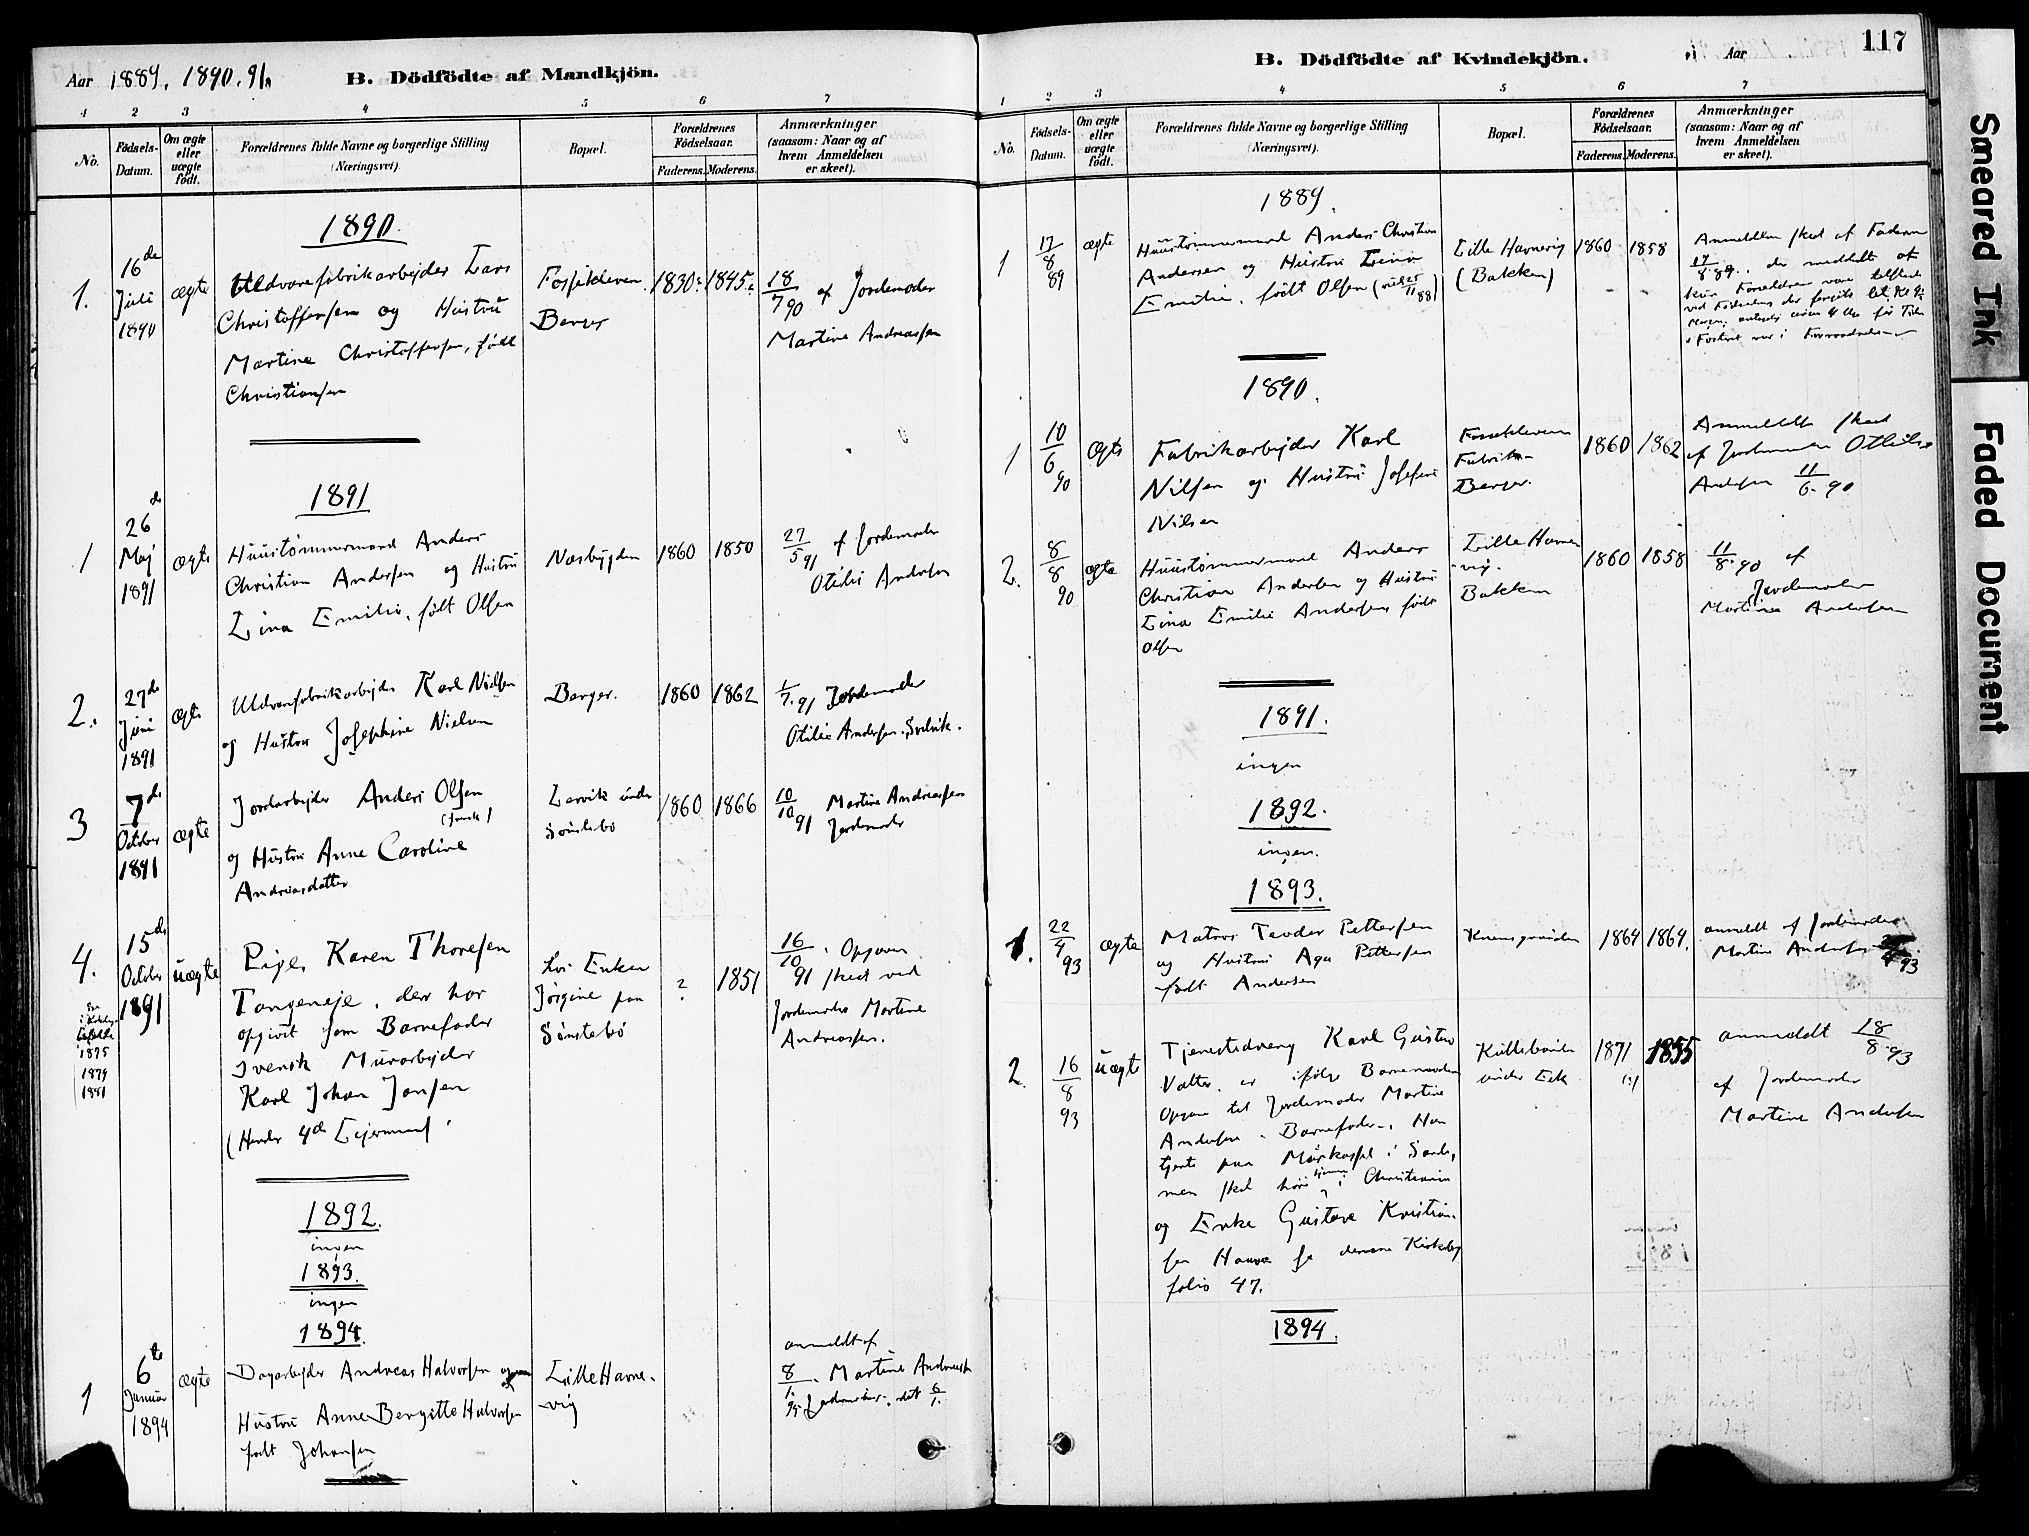 Aar 1889. 1890. 91.
B. Dödfödte af Mandkjön.
1 2 3 4 5 6 7
No.
Födsels-Datum.
Om ægte eller uægte födt.
Forældrenes fulde Navne og borgerlige Stilling
(Næringsvei).
Bopæl.
Forældrenes Födselsaar.
Faderens. Moderens.
Anmærkninger
(saasom: Naar og af
hvem Anmeldelsen
er skeet).
1890.
1. 16de Juli 1890 ægte
Uldvarefabrikarbejder Lars
Christoffersen og Hustru
Martine Christoffersen, født
Christiansen
Fossekleven
Berger
1830 1845
18/7 90 af Jordemoder
Martine Andreassen
1891
1 26de Maj 1891 ægte
Huustømmermand Anders
Christian Andersen og Hustru
Lina Emilie, født Olsen
Næsbygden
1860 1850
27/5 91 af Jordemoder
Otilie Andersen
2. 27de Juni 1891 ægte
Uldvarefabrikarbejder Karl Nielsen
og Hustru Josephine Nielsen
Berger.
1860 1862
1/7.91 Jordemoder
Otilie Andersen. Svelvik.
3 7de October 1891 ægte
Jordarbejder Anders Olsen
(svensk)
og Hustru Anne Caroline
Andreasdatter
Larvik under
Sønstebø
1860 1866
10/10 91 Martine Andreassen
Jordemoder
4. 15de October 1891 uægte
1875
1879
1881
Pige, Karen Thoresen
Tangeneje, der har
opgivet som Barnefader
svensk Murarbejder
Karl Johan Jansen
(Hendes 4de Lejermaal
hos Enken
Jørgine paa
Sønstebø
? 1851
16/10 91. Opgaven
skeet ved
Jordemoder Martine
Andreassen.
1892.
ingen
1893.
ingen
1894.
1 6te Januar 1894 ægte
Dagarbejder Andreas Halvorsen og
Hustru Anne Bergitte Halvorsen
født Johansen
Lille Havne-
vig
anmeldt af
8/1. Martine Andreassen
94 Jordemoder. 6/1.
B. Dödfödte af Kvindekjön.
Aar
117
1 2 3 4 5 6 7
No.
Födsels-Datum.
Om ægte eller uægte födt.
Forældrenes fulde Navne og borgerlige Stilling
(Næringsvei).
Bopæl.
Forældrenes Födselsaar.
Faderens. Moderens.
Anmærkninger
(saasom: Naar og af
hvem Anmeldelsen
er skeet).
1889.
1 17/8 89 ægte
Huustømmermand Anders Christian
Andersen og Hustru Lina
Emilie, født Olsen
Lille Havnevig
(Bakken)
1860 1858
Anmeldelsen skeet af Faderen
17/8 89
1890.
1 10/6 90 ægte
Fabrikarbejder Karl
Nilsen og Hustru Josefine
Nilsen
Fossekleven
Fabrik-
Berger.
1860 1862
Anmeldt skeet
af Jordemoder Otilie
Andersen 11/6.90
2. 8/8 90 ægte
Huustømmermand Anders
Christian Andersen og Hustru
Lina Emilie Andersen født
Olsen
Lille Havne-
vig.
Bakken
1860 1858
11/8.90 af
Jordemoder
Martine Andersen
1891.
ingen
1892.
ingen.
1893.
1. 22/4 93 ægte
Matros Teodor Pettersen
og Hustru Aga Pettersen
født Andersen
1864 1864.
anmeldt af Jordemoder
Martine Andersen 93
2. 16/8 93 uægte
Tjenestedreng Karl Gustav
Valter, er ifølge Barnemoderen
Opgave til Jordemoder Martine
Andersen Barnefader. Han
tjente paa i Sande,
men skal i Christiania
og Enke Gustave Kristian-
sen Havn se denne Kirkebog
folio 47.
under Eek
1871 1855
(?)
anmeldt 18/8.93
af Jordemoder
Martine Andersen
1894.
Smeared Ink
Faded Document